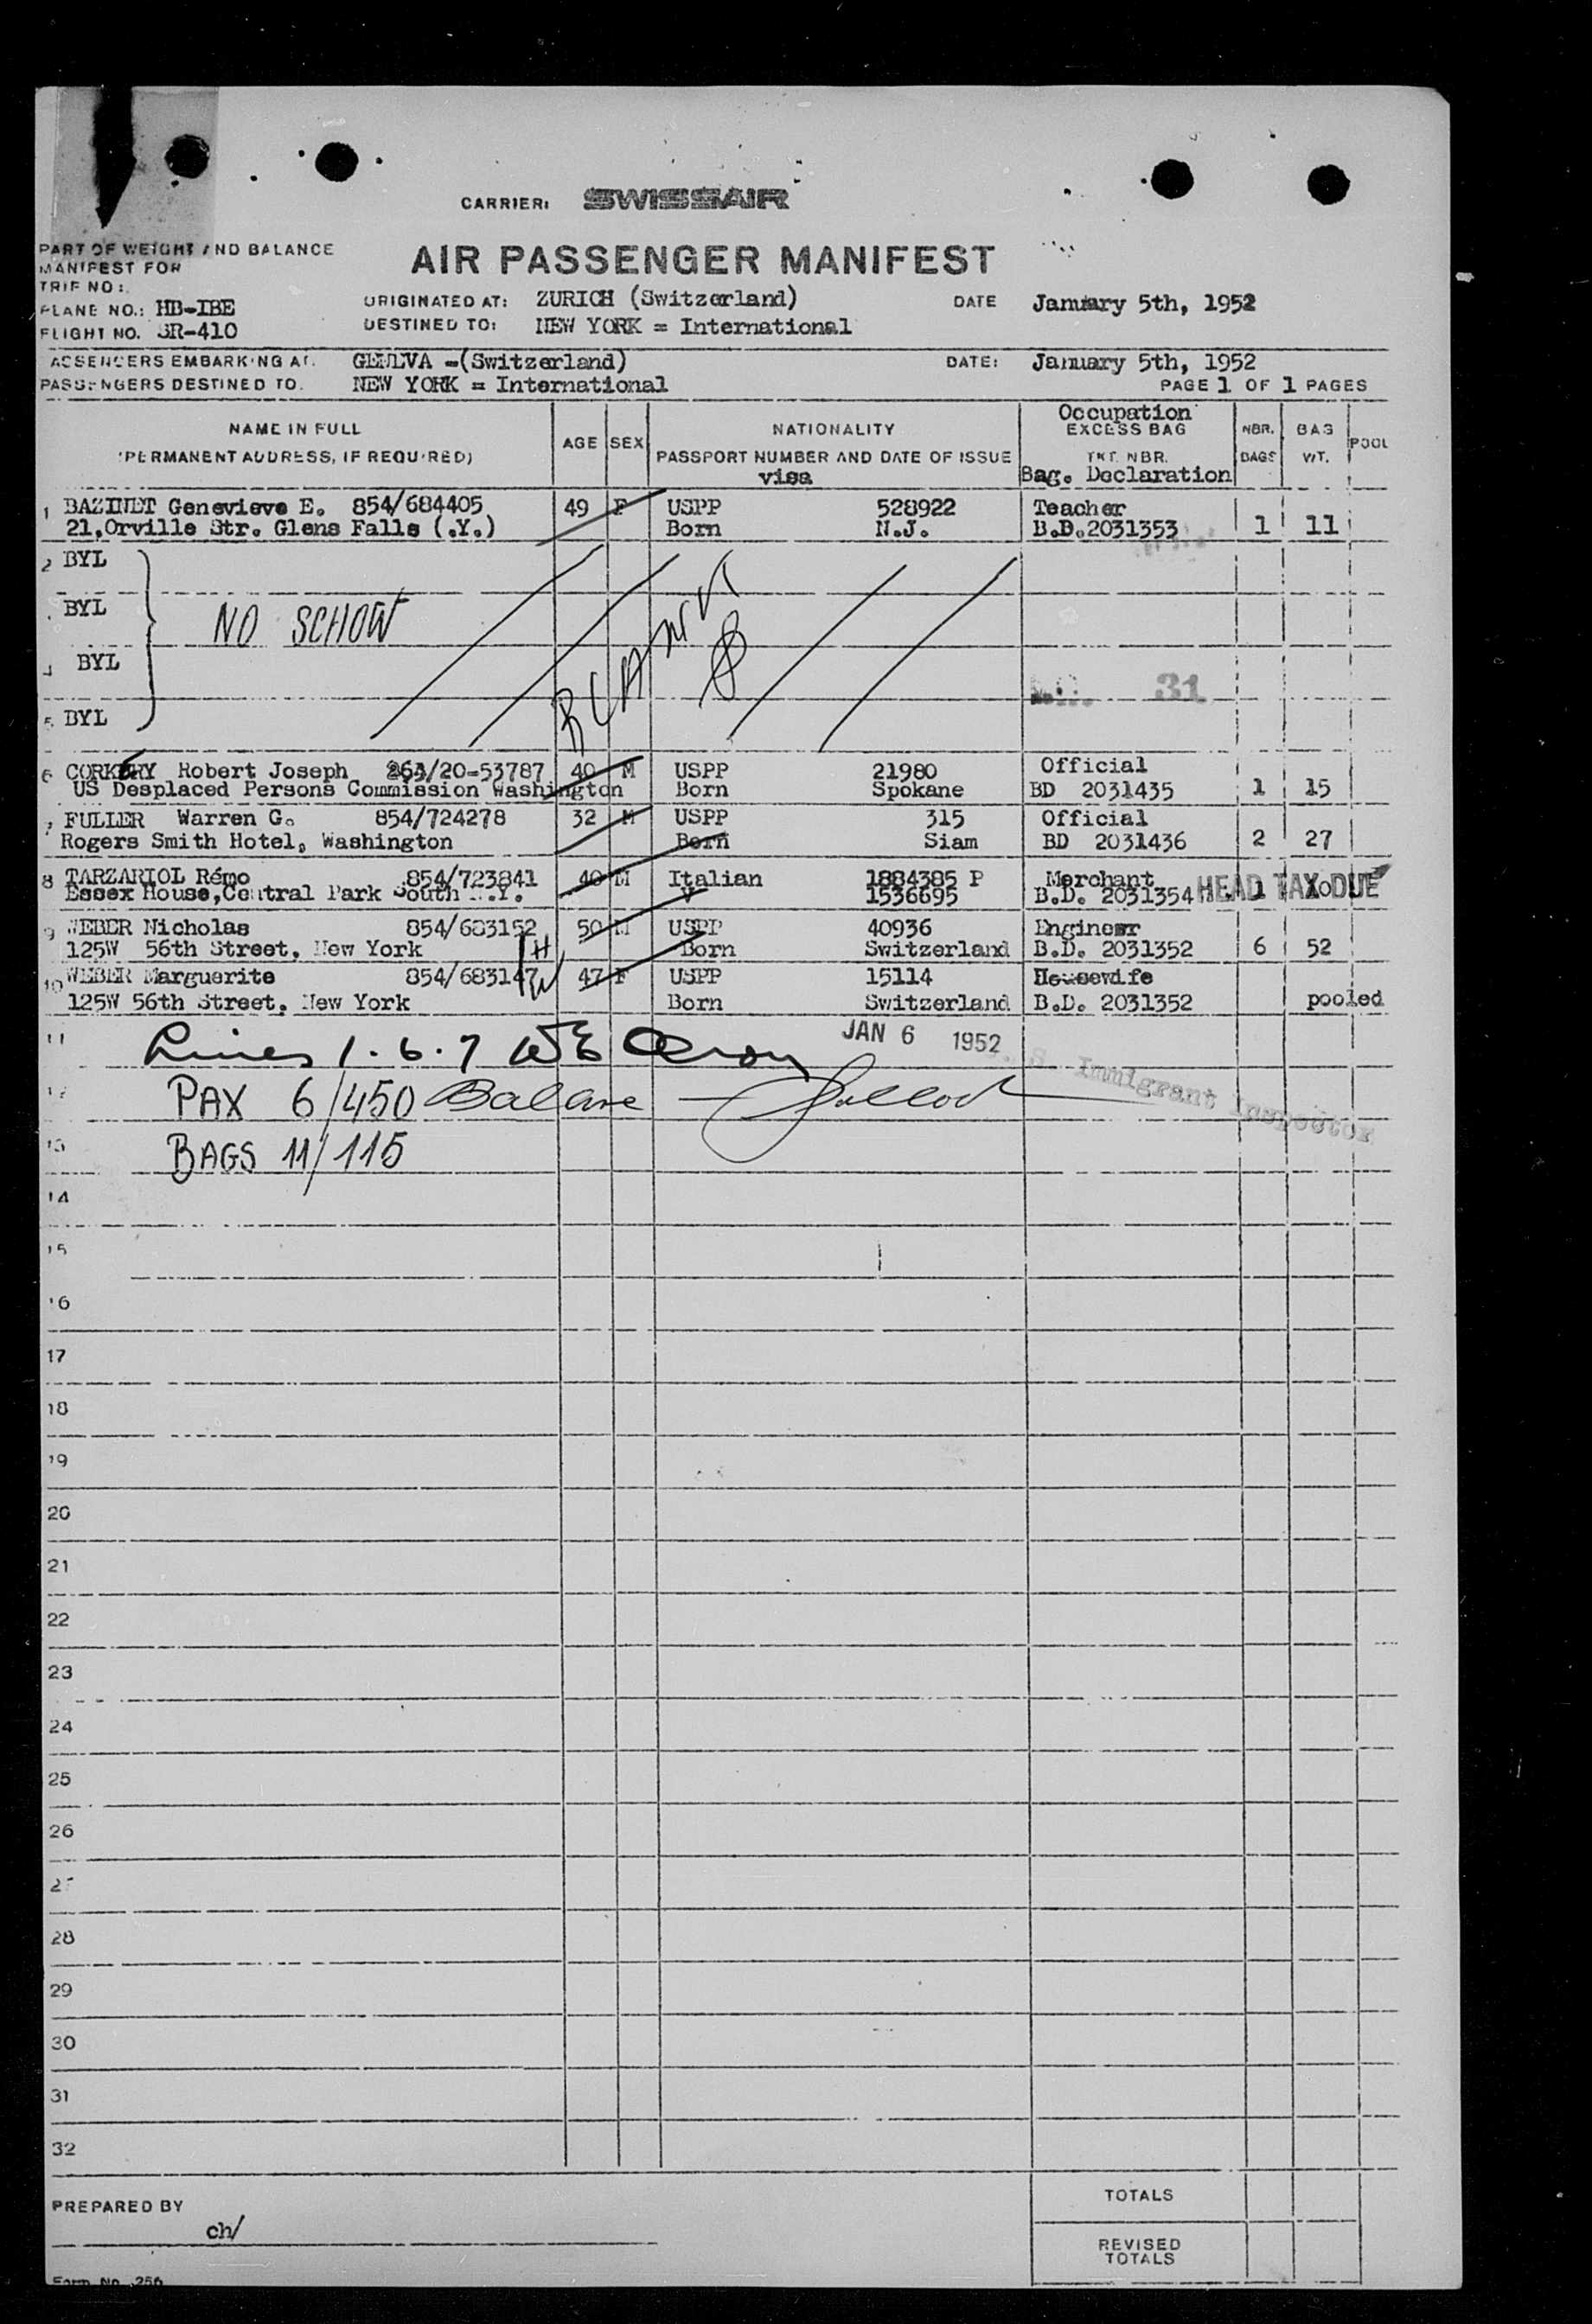 CARRIER: SWISSAIR
PART OF WEIGHT AND BALANCE
MANIFEST FOR
AIR PASSENGER MANIFEST
TRIP NO:
PLANE NO.: HB-IBE ORIGINATED AT: ZURICH (Switzerland) DATE January 5th, 1952
FLIGHT NO. SR-410 DESTINED TO: NEW YORK = International
PASSENGERS EMBARKING AT. GENEVA -(Switzerland) DATE: January 5th, 1952
PASSENGERS DESTINED TO. NEW YORK = International PAGE 1 OF 1 PAGES
NAME IN FULL AGE SEX NATIONALITY Occupation EXCESS BAG NBR. BAG POOL
(PERMANENT ADDRESS, IF REQUIRED) PASSPORT NUMBER AND DATE OF ISSUE TKT. NBR. BAGS WT.
visa Bag. Declaration
1 BAZINET Genevieve E. 854/684405 49 F USPP 528922 Teacher
21,Orville Str. Glens Falls (.Y.) Born N.J. B.D.2031353 1 11
2 BYL
BYL
NO SCHOW
BYL
31
5 BYL
6 CORKERY Robert Joseph 263/20-53787 40 M USPP 21980 Official
US Desplaced Persons Commission Washington Born Spokane BD 2031435 1 15
7 FULLER Warren G. 854/724278 32 M USPP 315 Official
Rogers Smith Hotel, Washington Born Siam BD 2031436 2 27
8 TARZARIOL Rémo 854/723841 40 M Italian 1884385 P Merchant
Essex House,Central Park South N.Y. V 1536695 B.D. 2031354 1 10
HEAD TAX DUE
9 WEBER Nicholas 854/683152 50 M USPP 40936 Engineer
125W 56th Street, New York H Born Switzerland B.D. 2031352 6 52
10 WEBER Marguerite 854/683147 W 47 F USPP 15114 Housewife
125W 56th Street, New York Born Switzerland B.D. 2031352 pooled
11 Lines 1.6.7 JAN 6 1952
12 PAX 6/450 Balance
Immigrant Inspector
13 BAGS 11/115
14
15
16
17
18
19
20
21
22
23
24
25
26
28
29
30
31
32
TOTALS
PREPARED BY
ch/
REVISED
TOTALS
Form No. 256